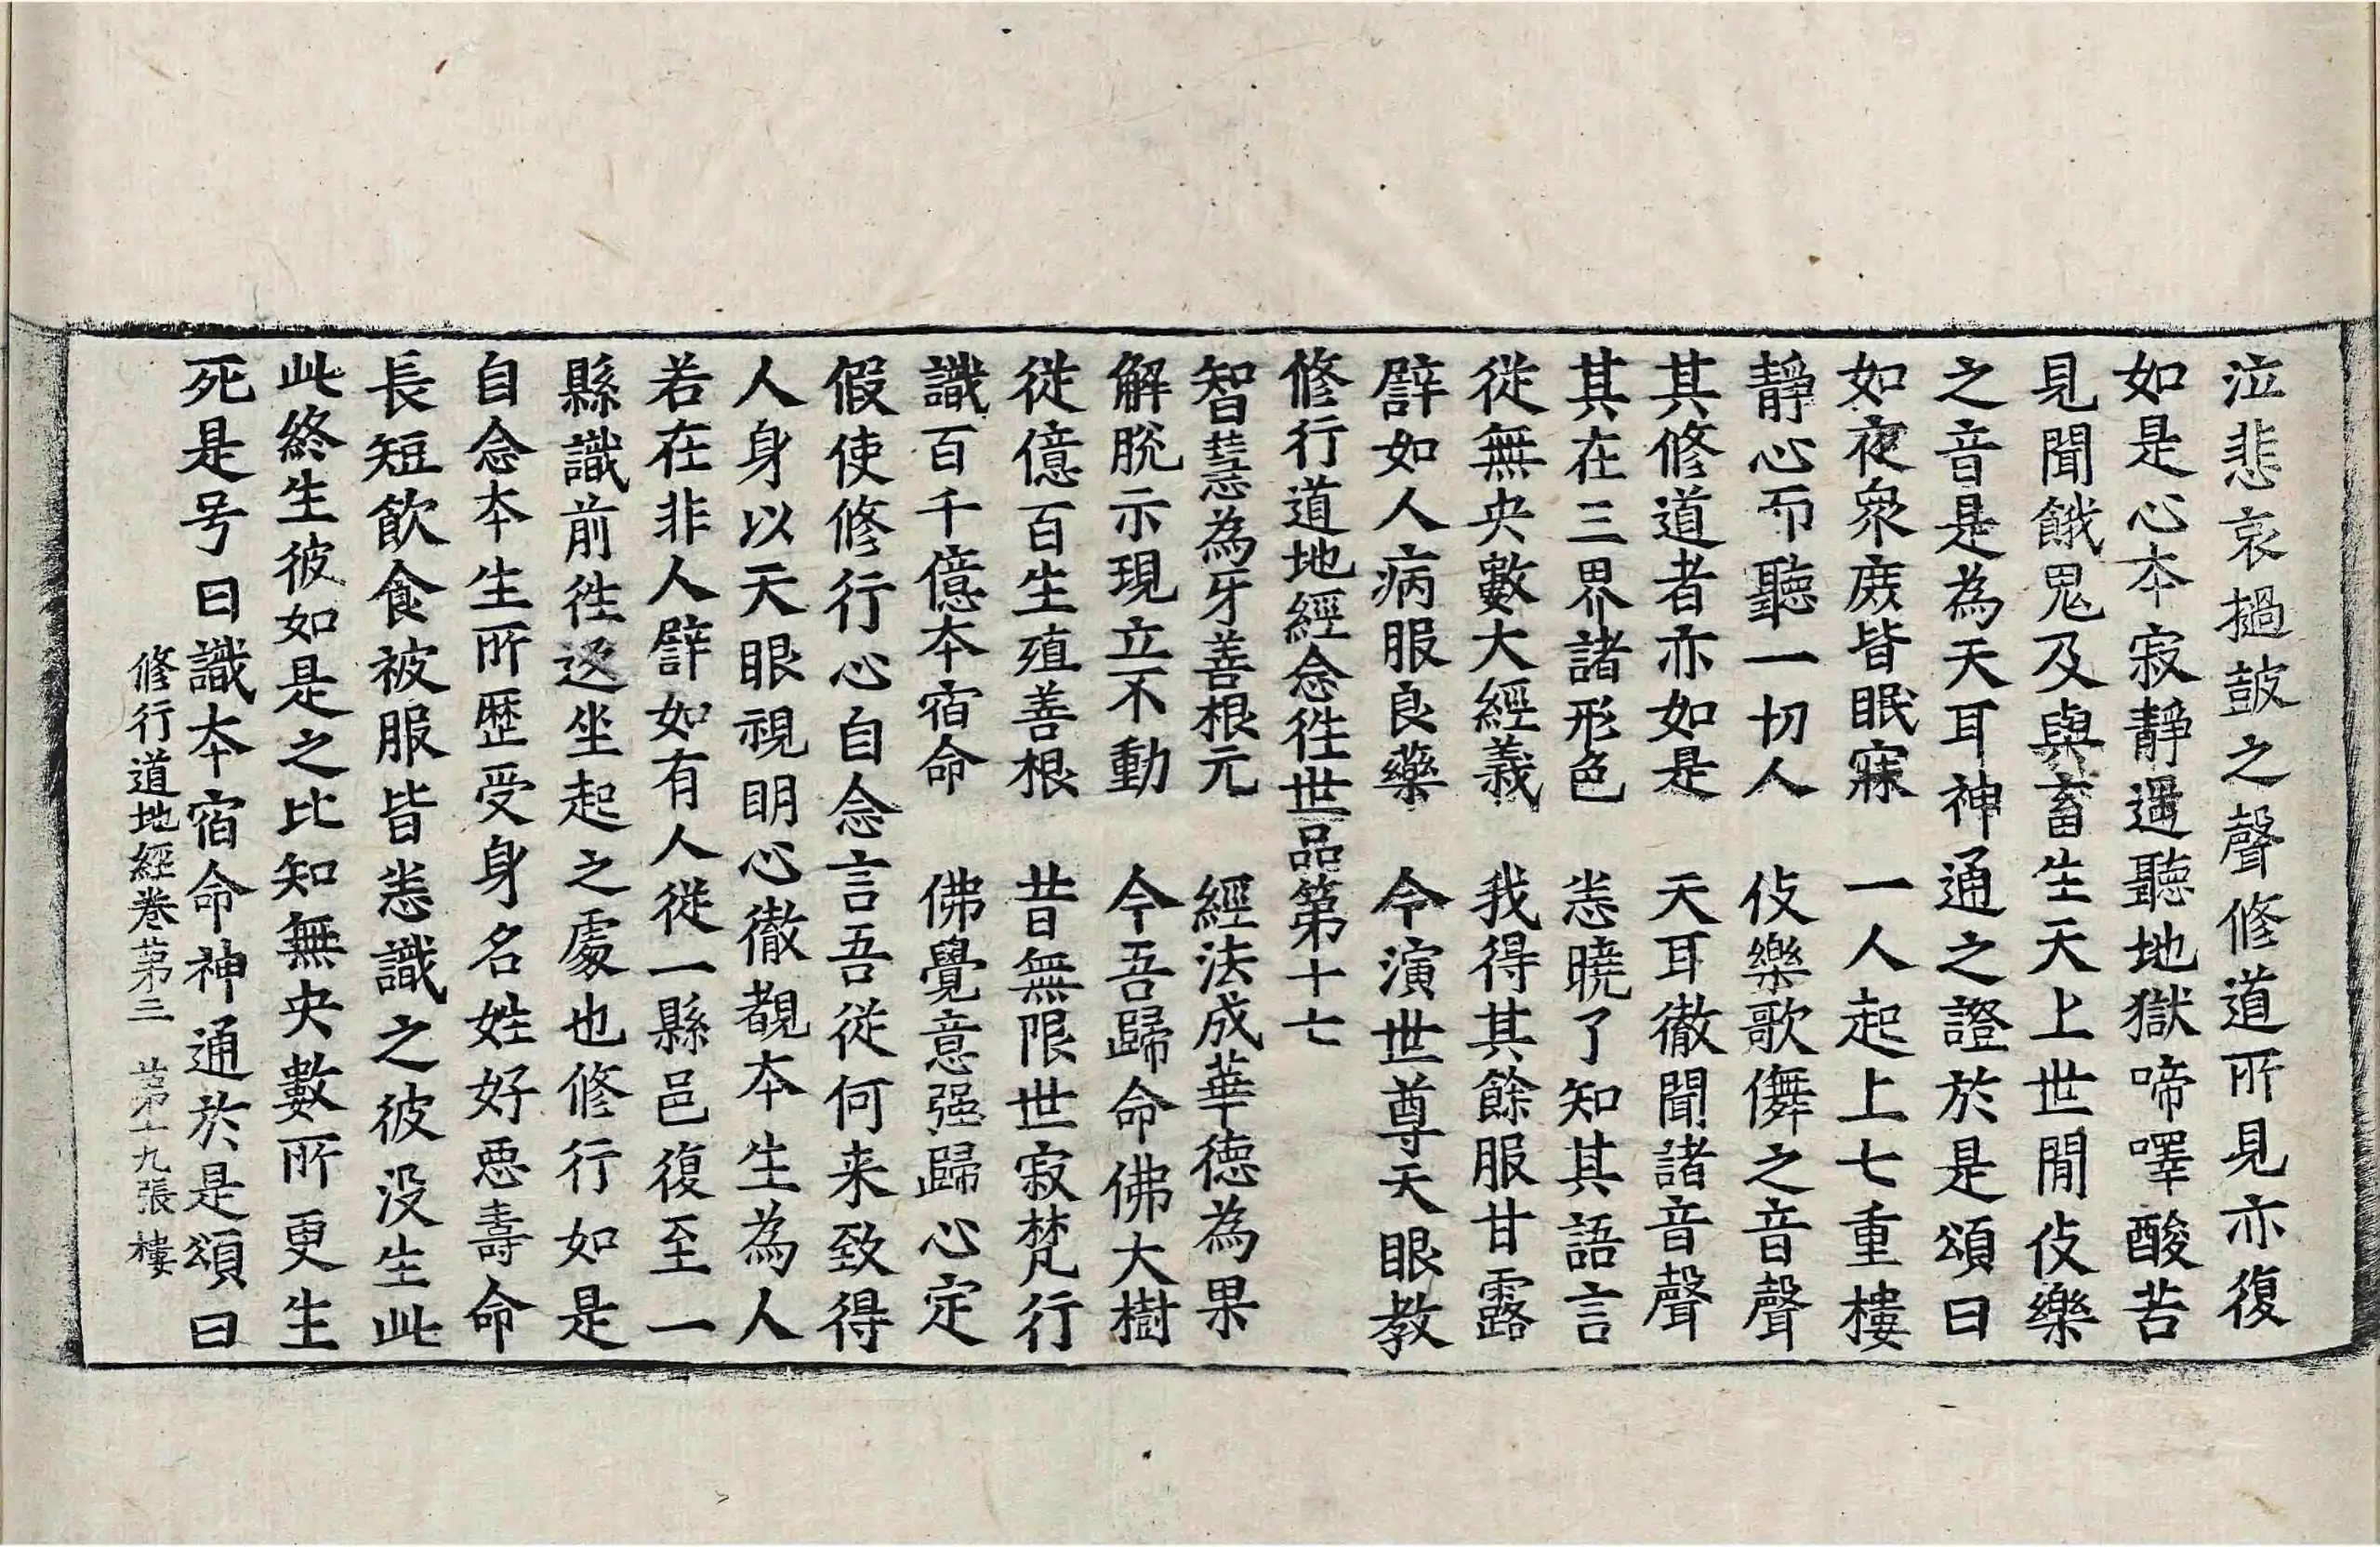 泣悲哀撾鼓之聲修道所見亦復
如是心本寂靜遥聽地獄啼嘷酸苦
見聞餓鬼及與畜生天上世間伎樂
之音是為天耳神通之證於是頌曰
如夜衆庶皆眠寐　一人起上七重樓
靜心而聽一切人　伎樂歌儛之音聲
其修道者亦如是　天耳徹聞諸音聲
其在三界諸形色　悉曉了知其語言
從無央數大經義　我得其餘服甘露
譬如人病服良藥　今演世尊天眼教
修行道地經念徃世品第十七
智慧為牙善根元　經法成華德為果
解脫示現立不動　今吾歸命佛大樹
從億百生殖善根　昔無限世寂梵行
識百千億本宿命　佛覺意强歸心定
假使修行心自念言吾從何来致得
人身以天眼視明心徹覩本生為人
若在非人譬如有人從一縣邑復至一
縣識前徃返坐起之處也修行如是
自念本生所歷受身名姓好惡壽命
長短飲食被服皆悉識之彼没生此
此終生彼如是之比知無央數所更生
死是号曰識本宿命神通於是頌曰
修行道地經卷第三　第十九張　樓